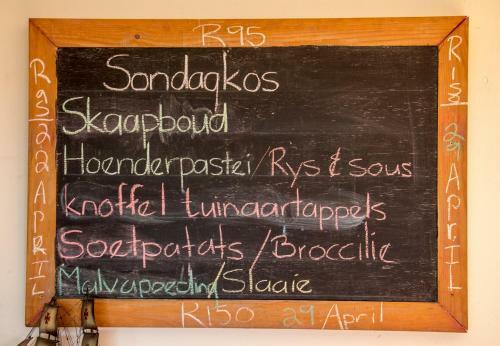 R95
Sondagkos
Skaapboud
Hoenderpastei/Rys & sous
knoffel tuinaartappels
Soetpatats/Broccilie
Malvapoeding/Slaaie
R150 29 April
R95 22 APRIL
R15 29 APRIL